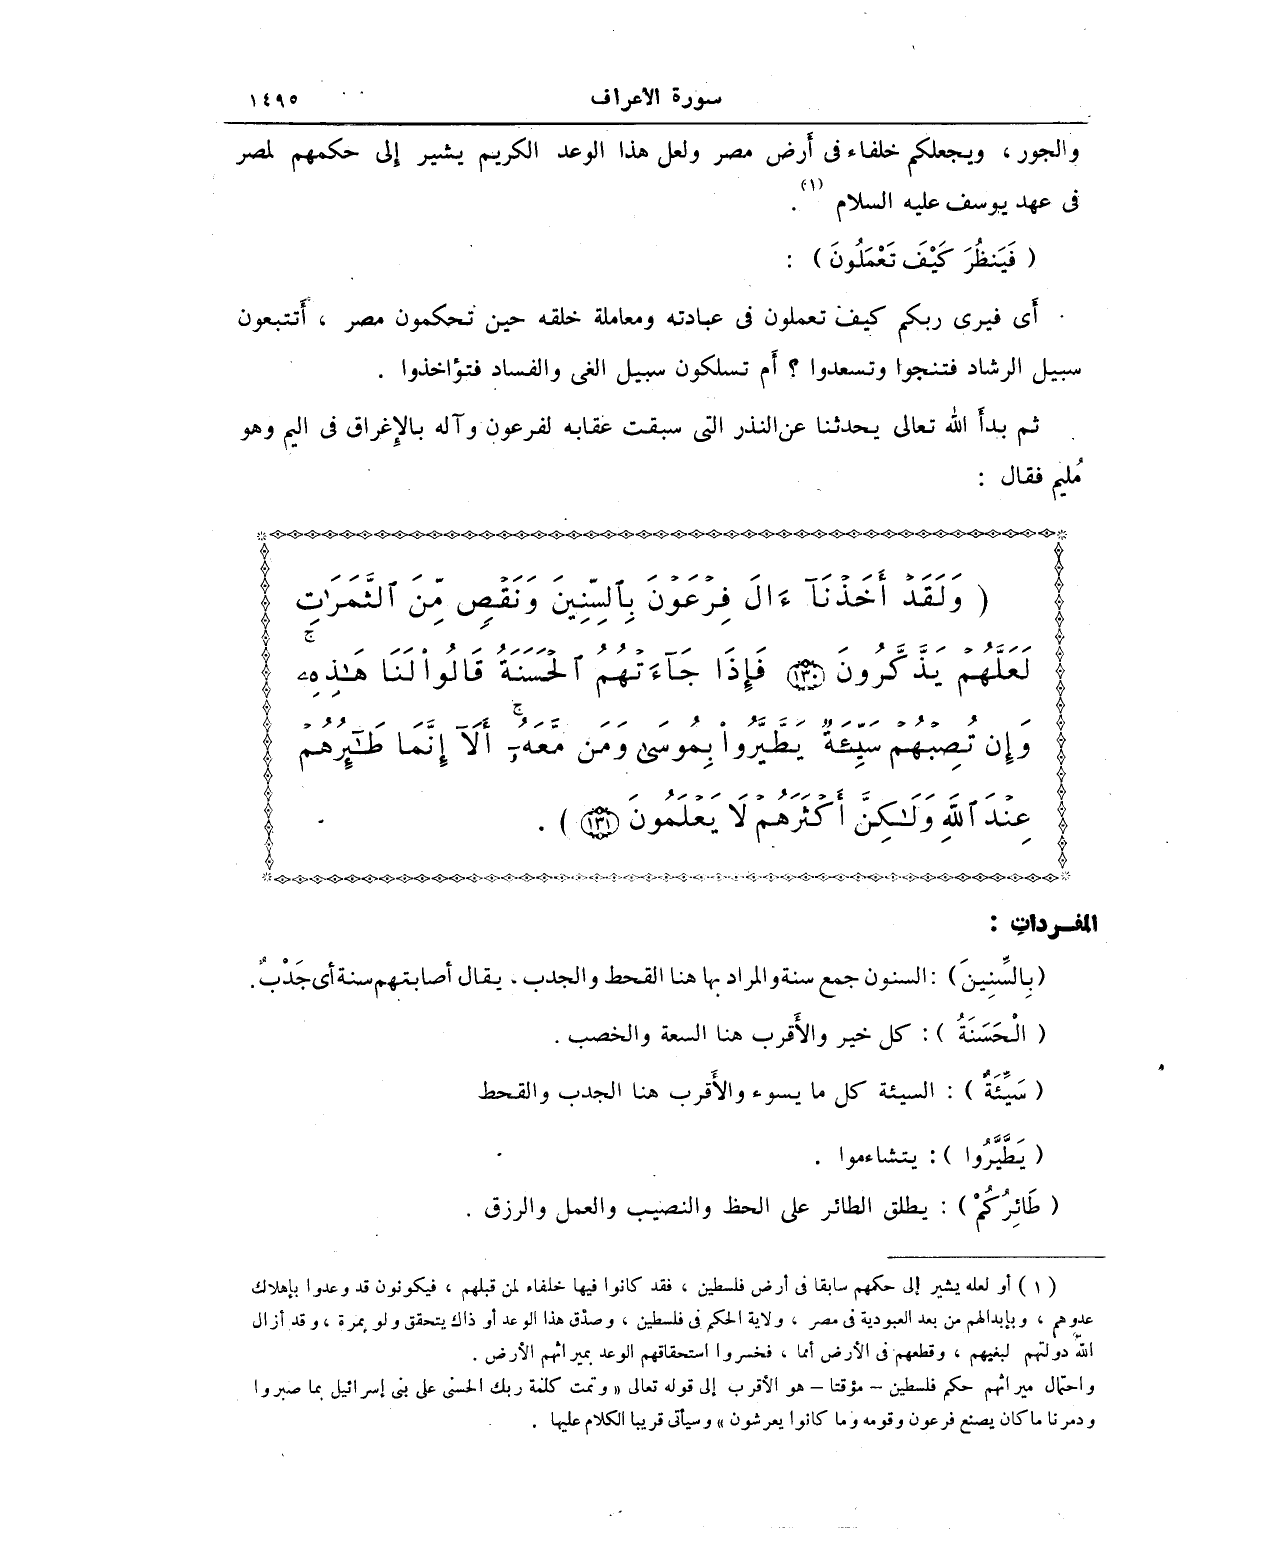 سورة الأعراف ١٤٩٥
والجور ، ويجعلكم خلفاء فى أَرض مصر ولعل هذا الوعد الكريم يشير إلى حكمهم لمصر
فى عهد يوسف عليه السلام (١) .
( فَيَنظُرَ كَيْفَ تَعْمَلُونَ ) :
أَى فيرى ربكم كيف تعملون فى عبادته ومعاملة خلقه حين تحكمون مصر ، أَتتبعون
سبيل الرشاد فتنجوا وتسعدوا ؟ أَم تسلكون سبيل الغى والفساد فتؤاخذوا .
ثم بدأَ الله تعالى يحدثنا عن النذر التى سبقت عقابه لفرعون وآله بالإِغراق فى اليم وهو
مُليم فقال :
( وَلَقَدْ أَخَذْنَآ ءَالَ فِرْعَوْنَ بِٱلسِّنِينَ وَنَقْصٍ مِّنَ ٱلثَّمَرَٰتِ
لَعَلَّهُمْ يَذَّكَّرُونَ ﴿١٣٠﴾ فَإِذَا جَآءَتْهُمُ ٱلْحَسَنَةُ قَالُوا۟ لَنَا هَـٰذِهِۦ ۖ
وَإِن تُصِبْهُمْ سَيِّئَةٌ يَطَّيَّرُوا۟ بِمُوسَىٰ وَمَن مَّعَهُۥٓ ۗ أَلَآ إِنَّمَا طَـٰٓئِرُهُمْ
عِندَ ٱللَّهِ وَلَـٰكِنَّ أَكْثَرَهُمْ لَا يَعْلَمُونَ ﴿١٣١﴾ ) .
المفـردات :
(بِالسِّنِينَ) : السنون جمع سنة والمراد بها هنا القحط والجدب . يقال أصابتهم سنة أى جَدْبٌ .
( الْحَسَنَةُ ) : كل خير والأَقرب هنا السعة والخصب .
( سَيِّئَةٌ ) : السيئة كل ما يسوء والأَقرب هنا الجدب والقحط
( يَطَّيَّرُوا ) : يتشاءموا .
( طَائِرُكُمْ ) : يطلق الطائر على الحظ والنصيب والعمل والرزق .
( ١ ) أو لعله يشير إلى حكمهم سابقا فى أرض فلسطين ، فقد كانوا فيها خلفاء لمن قبلهم ، فيكونون قد وعدوا بإهلاك
عدوهم ، وبإبدالهم من بعد العبودية فى مصر ، ولاية الحكم فى فلسطين ، وصدّق هذا الوعد أو ذاك يتحقق ولو بمرة ، وقد أزال
اللّه دولتهم لبغيهم ، وقطعهم فى الأرض أمما ، فخسروا استحقاقهم الوعد بميراثهم الأرض .
واحتمال ميراثهم حكم فلسطين – مؤقتا – هو الأقرب إلى قوله تعالى « وتمت كلمة ربك الحسنى على بنى إسرائيل بما صبروا
ودمرنا ما كان يصنع فرعون وقومه وما كانوا يعرشون » وسيأتى قريبا الكلام عليها .